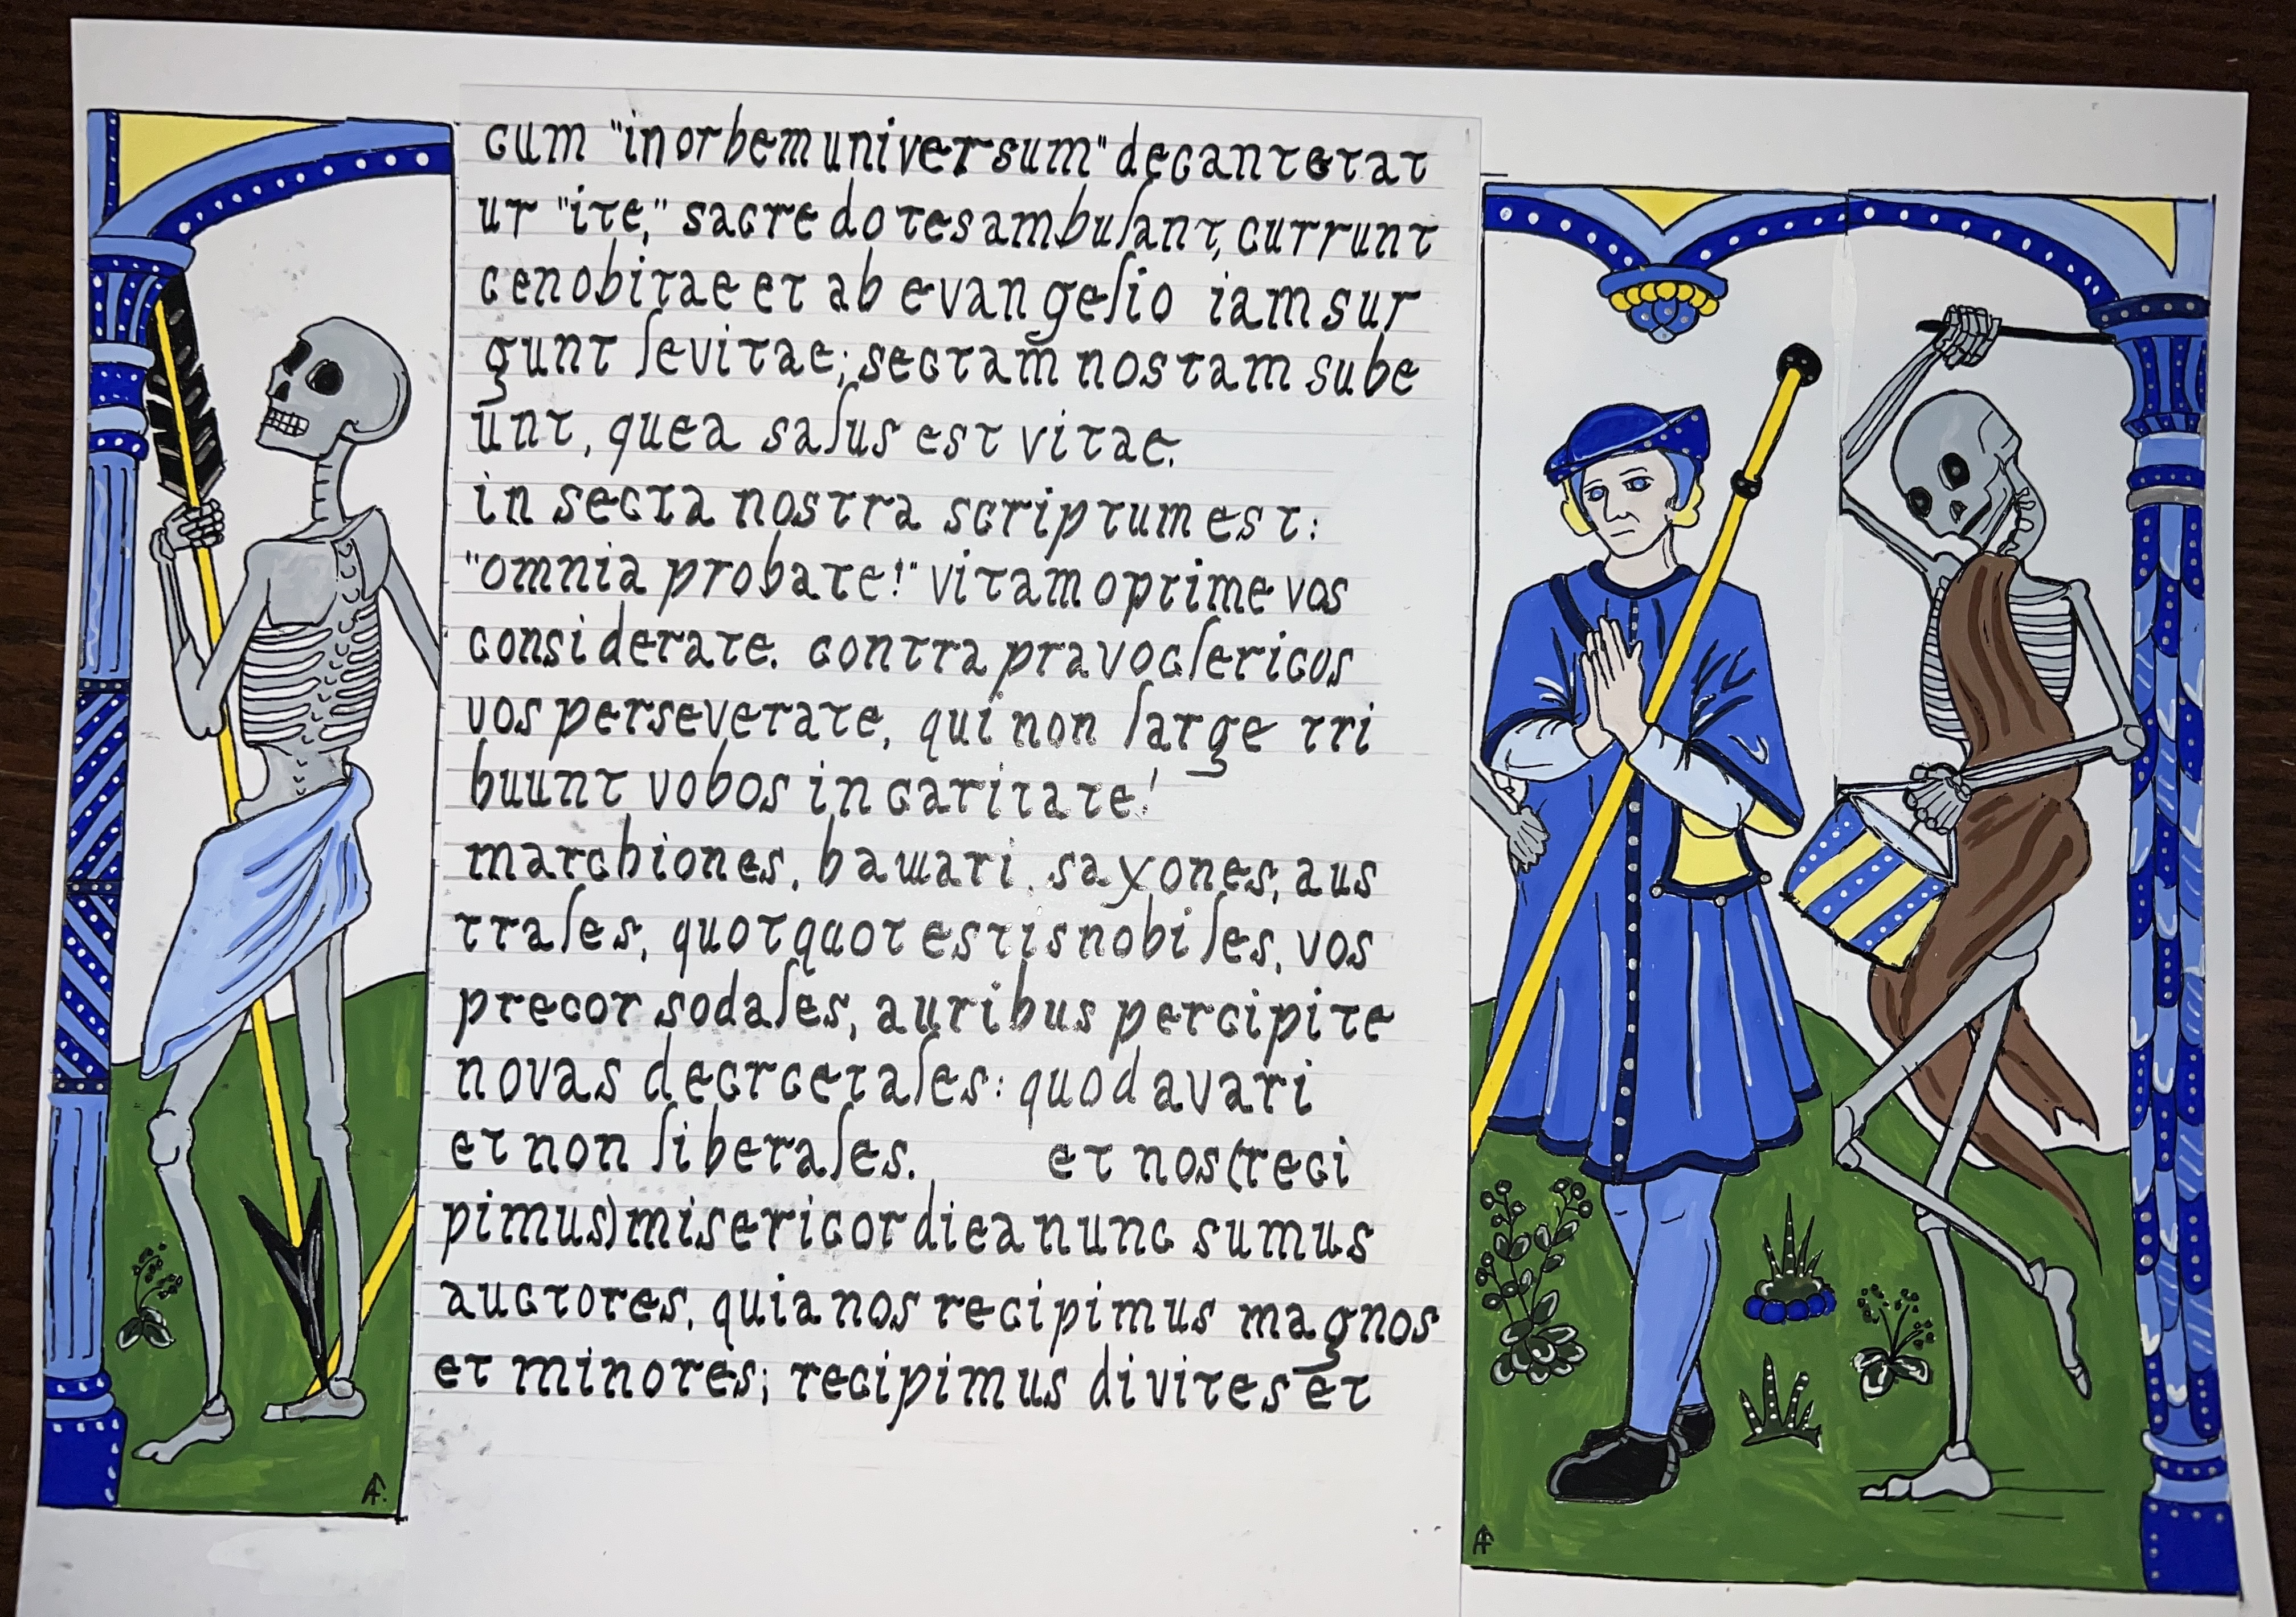 cum "in orbem universum" decantetat
ut "ite," sacredotes ambulant, currunt
cenobitae et ab evangelio iam sur
gunt levitae; sectam nostam sube
unt, quea salus est vitae.
in secta nostra scriptum est:
"omnia probate!" vitam optime vos
considerate. contra pravos clericos
vos perseverate, qui non large tri
buunt vobos in caritate!
marchiones, bawari, saxones, aus
trales, quotquot estis nobiles, vos
precor sodales, auribus percipite
novas decrcetales: quod avari
et non liberales. et nos (reci
pimus) misericordiea nunc sumus
auctores, quia nos recipimus magnos
et minores; recipimus divites et
AF.
AF